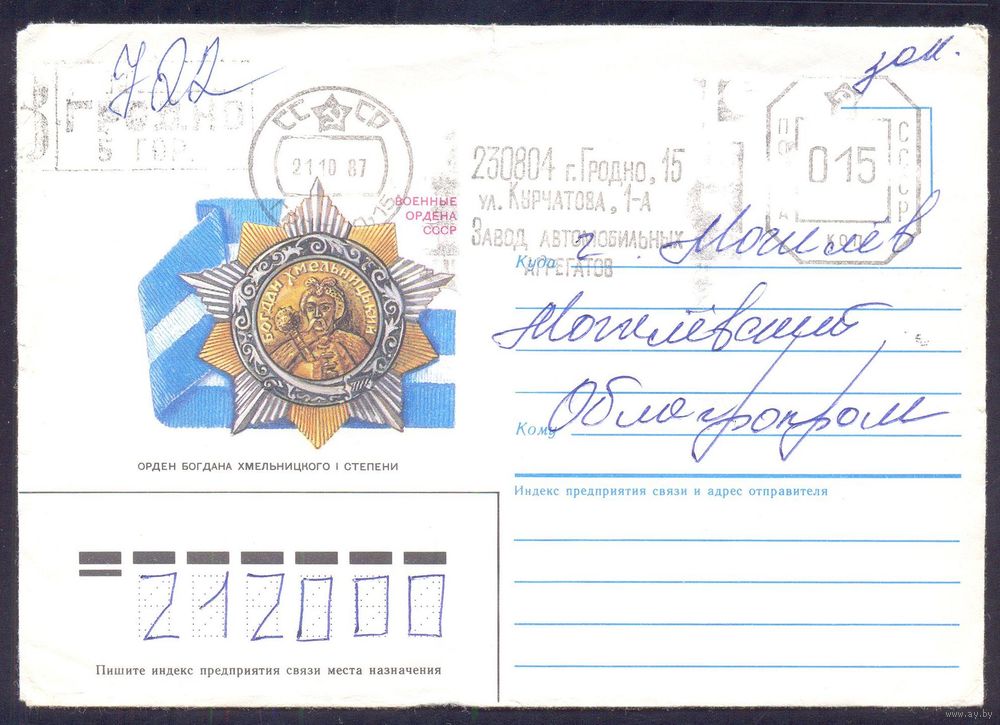 зак.
ГРОДНО
5 ГОР.
СССР
21 10 87
230804 г. ГРОДНО, 15
УЛ. КУРЧАТОВА, 1-А
ЗАВОД АВТОМОБИЛЬНЫХ
АГРЕГАТОВ
СССР
015
КОП
ВОЕННЫЕ
ОРДЕНА
СССР
БОГДАН ХМЕЛЬНИЦЬКИЙ
ОРДЕН БОГДАНА ХМЕЛЬНИЦКОГО I СТЕПЕНИ
Куда г. Могилёв
Могилёвский
Кому Облагропром
Индекс предприятия связи и адрес отправителя
212000
Пишите индекс предприятия связи места назначения
www.ay.by